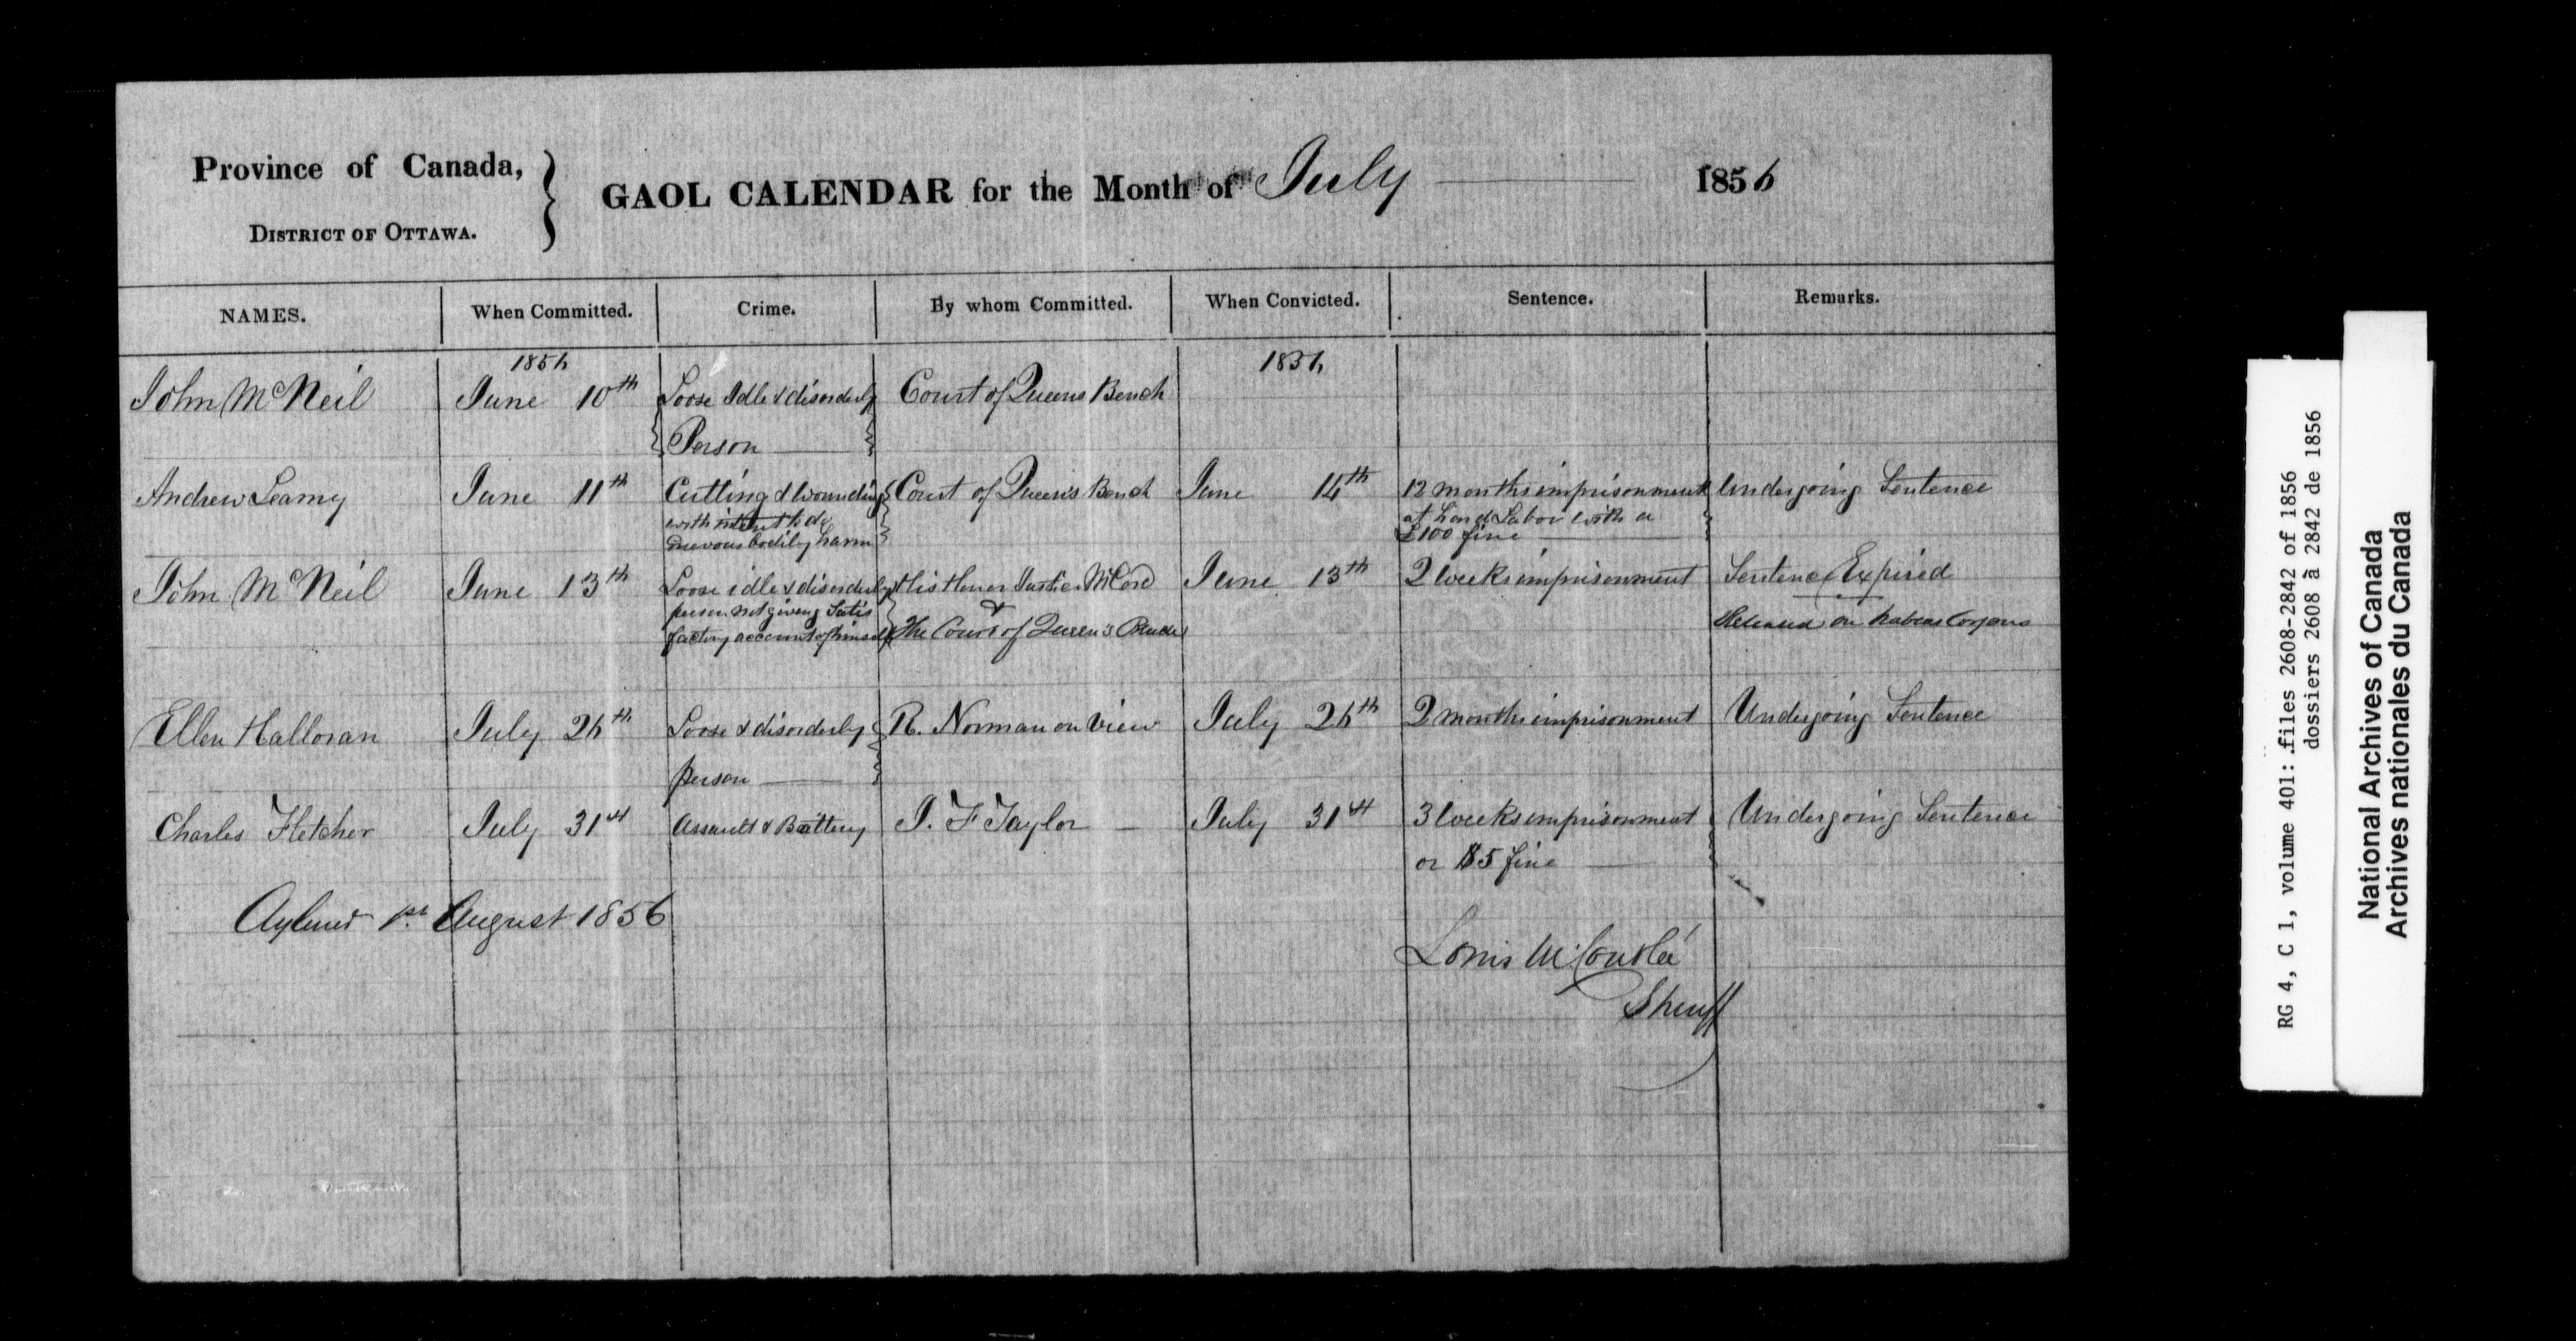 Province of Canada,
DISTRICT OF OTTAWA.
GAOL CALENDAR for the Month of July 1856
NAMES. When Committed. Crime. By whom Committed. When Convicted. Sentence. Remarks.
1856 1856
John McNeil June 10th Loose Idle & disorderly Court of Queens Bench
Person
Andrew Leamy June 11th Cutting & Wounding Court of Queen's Bench June 14th 12 months imprisonment Undergoing Sentence
with intent to do at Hard Labor with a
Grevous bodily harm £100 fine
John McNeil June 13th Loose idle & disorderly His Honor Justice McCord June 13th 2 weeks imprisonment Sentence Expired
person not giving Satis &
factory account of himself The Court of Queen's Bench Released on habeas Corpus
Ellen Halloran July 26th Loose & disorderly R. Norman on View July 26th 2 months imprisonment Undergoing Sentence
person
Charles Fletcher July 31st Assault & Battery J. F Taylor July 31st 3 weeks imprisonment Undergoing Sentence
or $5 fine
Aylmer 1st August 1856
Louis M. Coutlée
Sheriff
RG 4, C 1, volume 401: files 2608-2842 of 1856
dossiers 2608 à 2842 de 1856
National Archives of Canada
Archives nationales du Canada